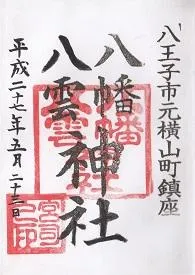 八王子市元横山町鎮座
八幡神社
八雲神社
平成二十七年五月二十三日